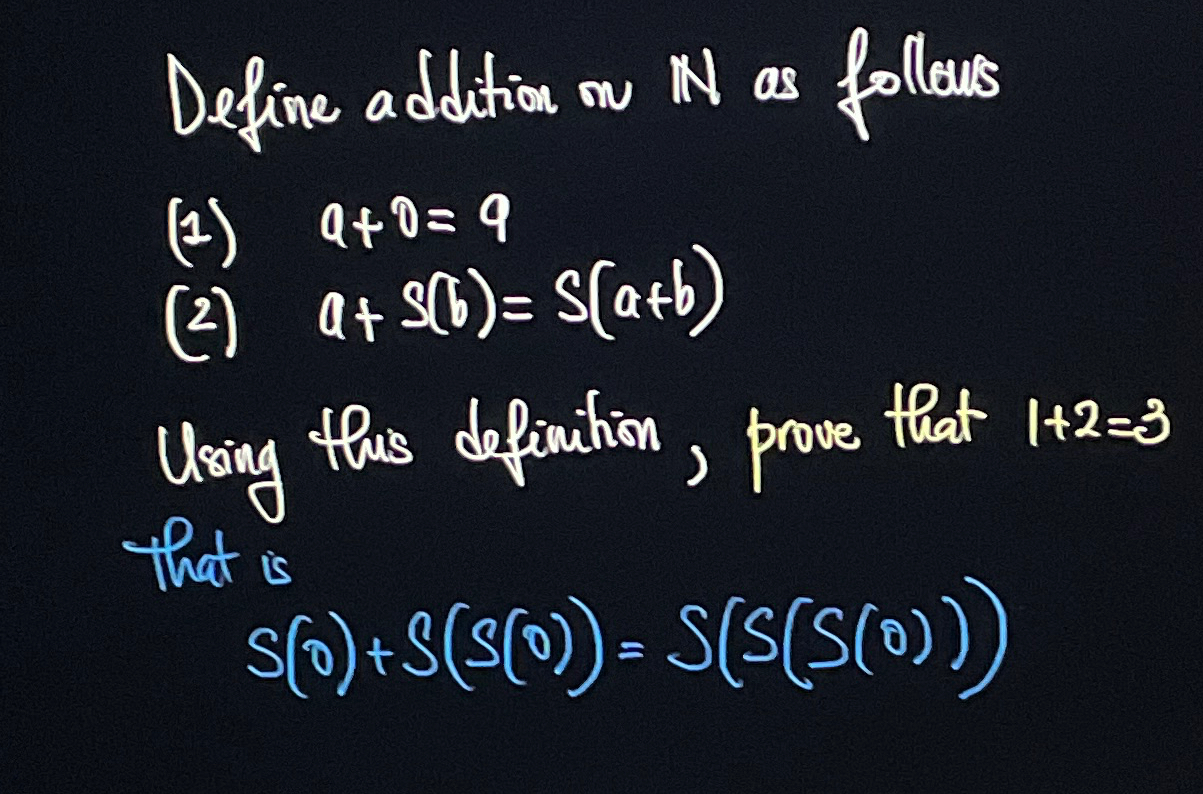 Define addition on ℕ as follows
(1) a+0=a
(2) a+S(b)=S(a+b)
Using this definition, prove that 1+2=3
that is
S(0)+S(S(0))=S(S(S(0)))